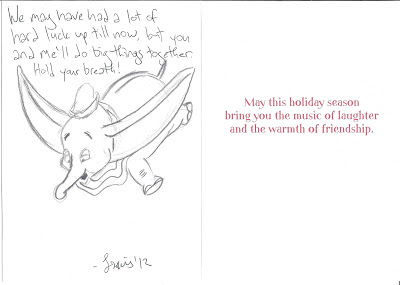 We may have had a lot of
hard luck up till now, but you
and me'll do big things together.
Hold your breath!
- Travis '12
May this holiday season
bring you the music of laughter
and the warmth of friendship.